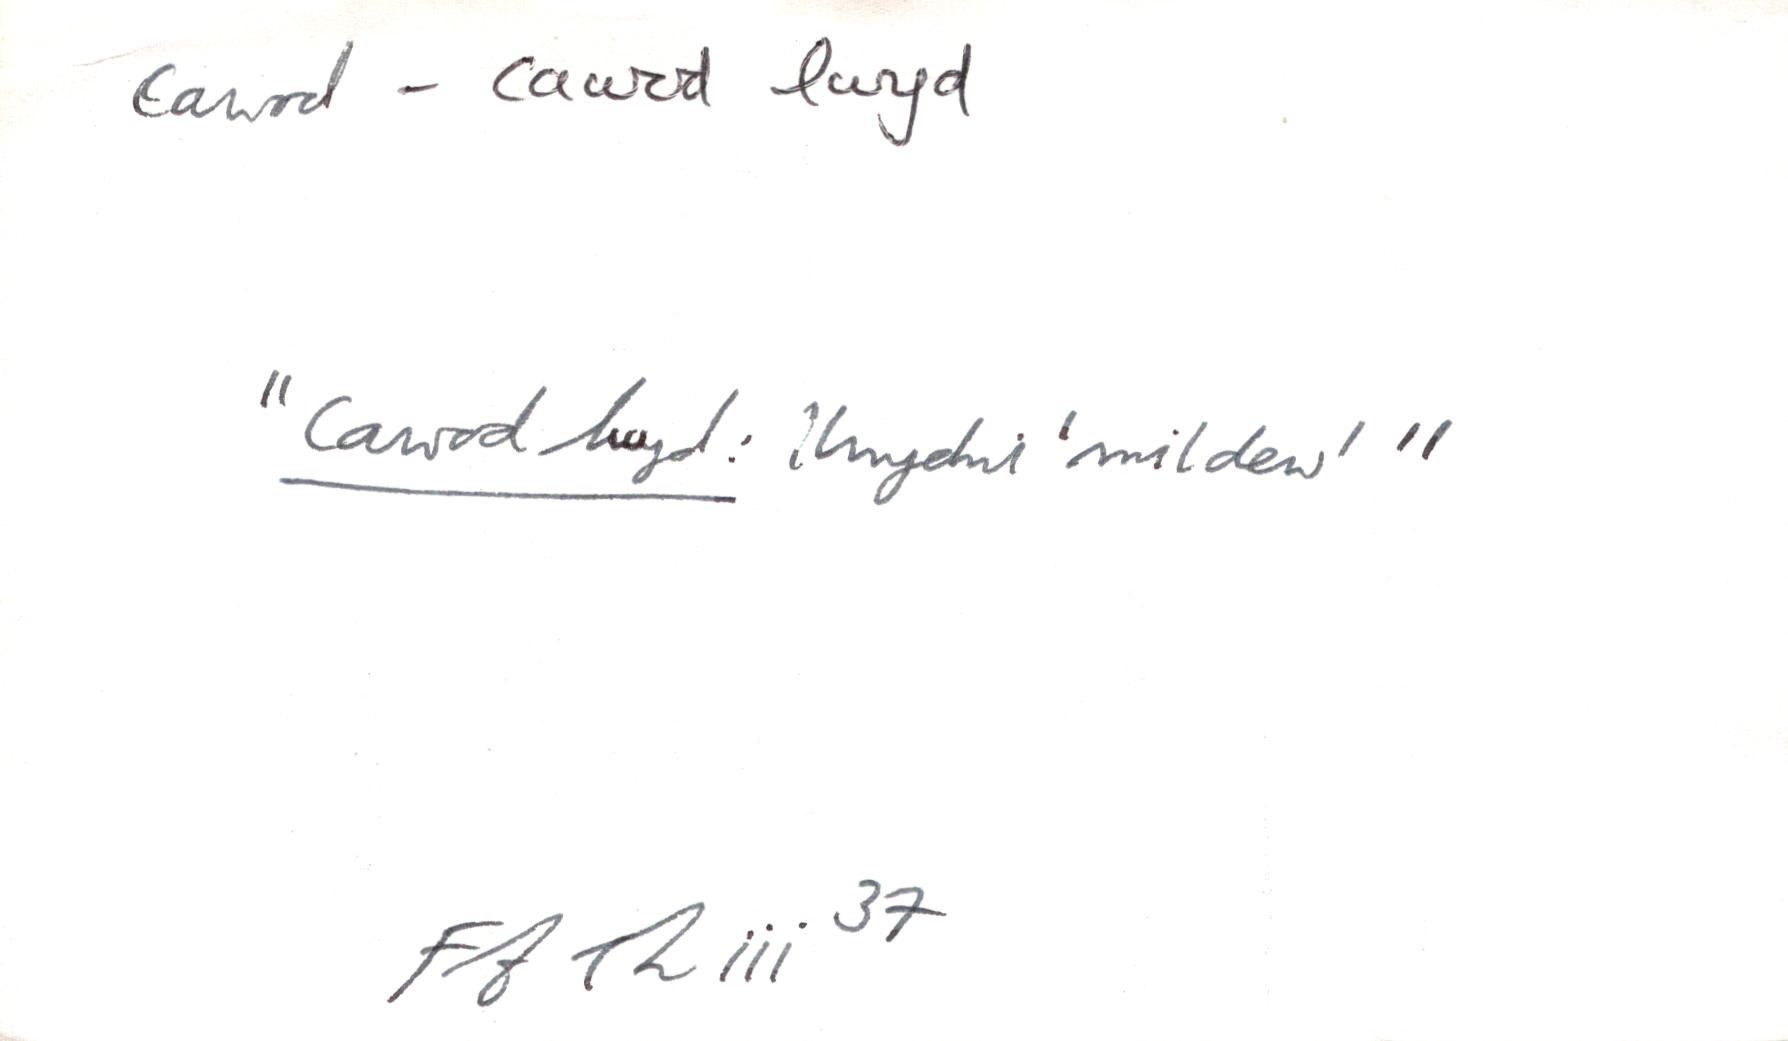 Cawod - cawod lwyd
"Cawod lwyd: llwydni 'mildew' "
Ff Th iii 37